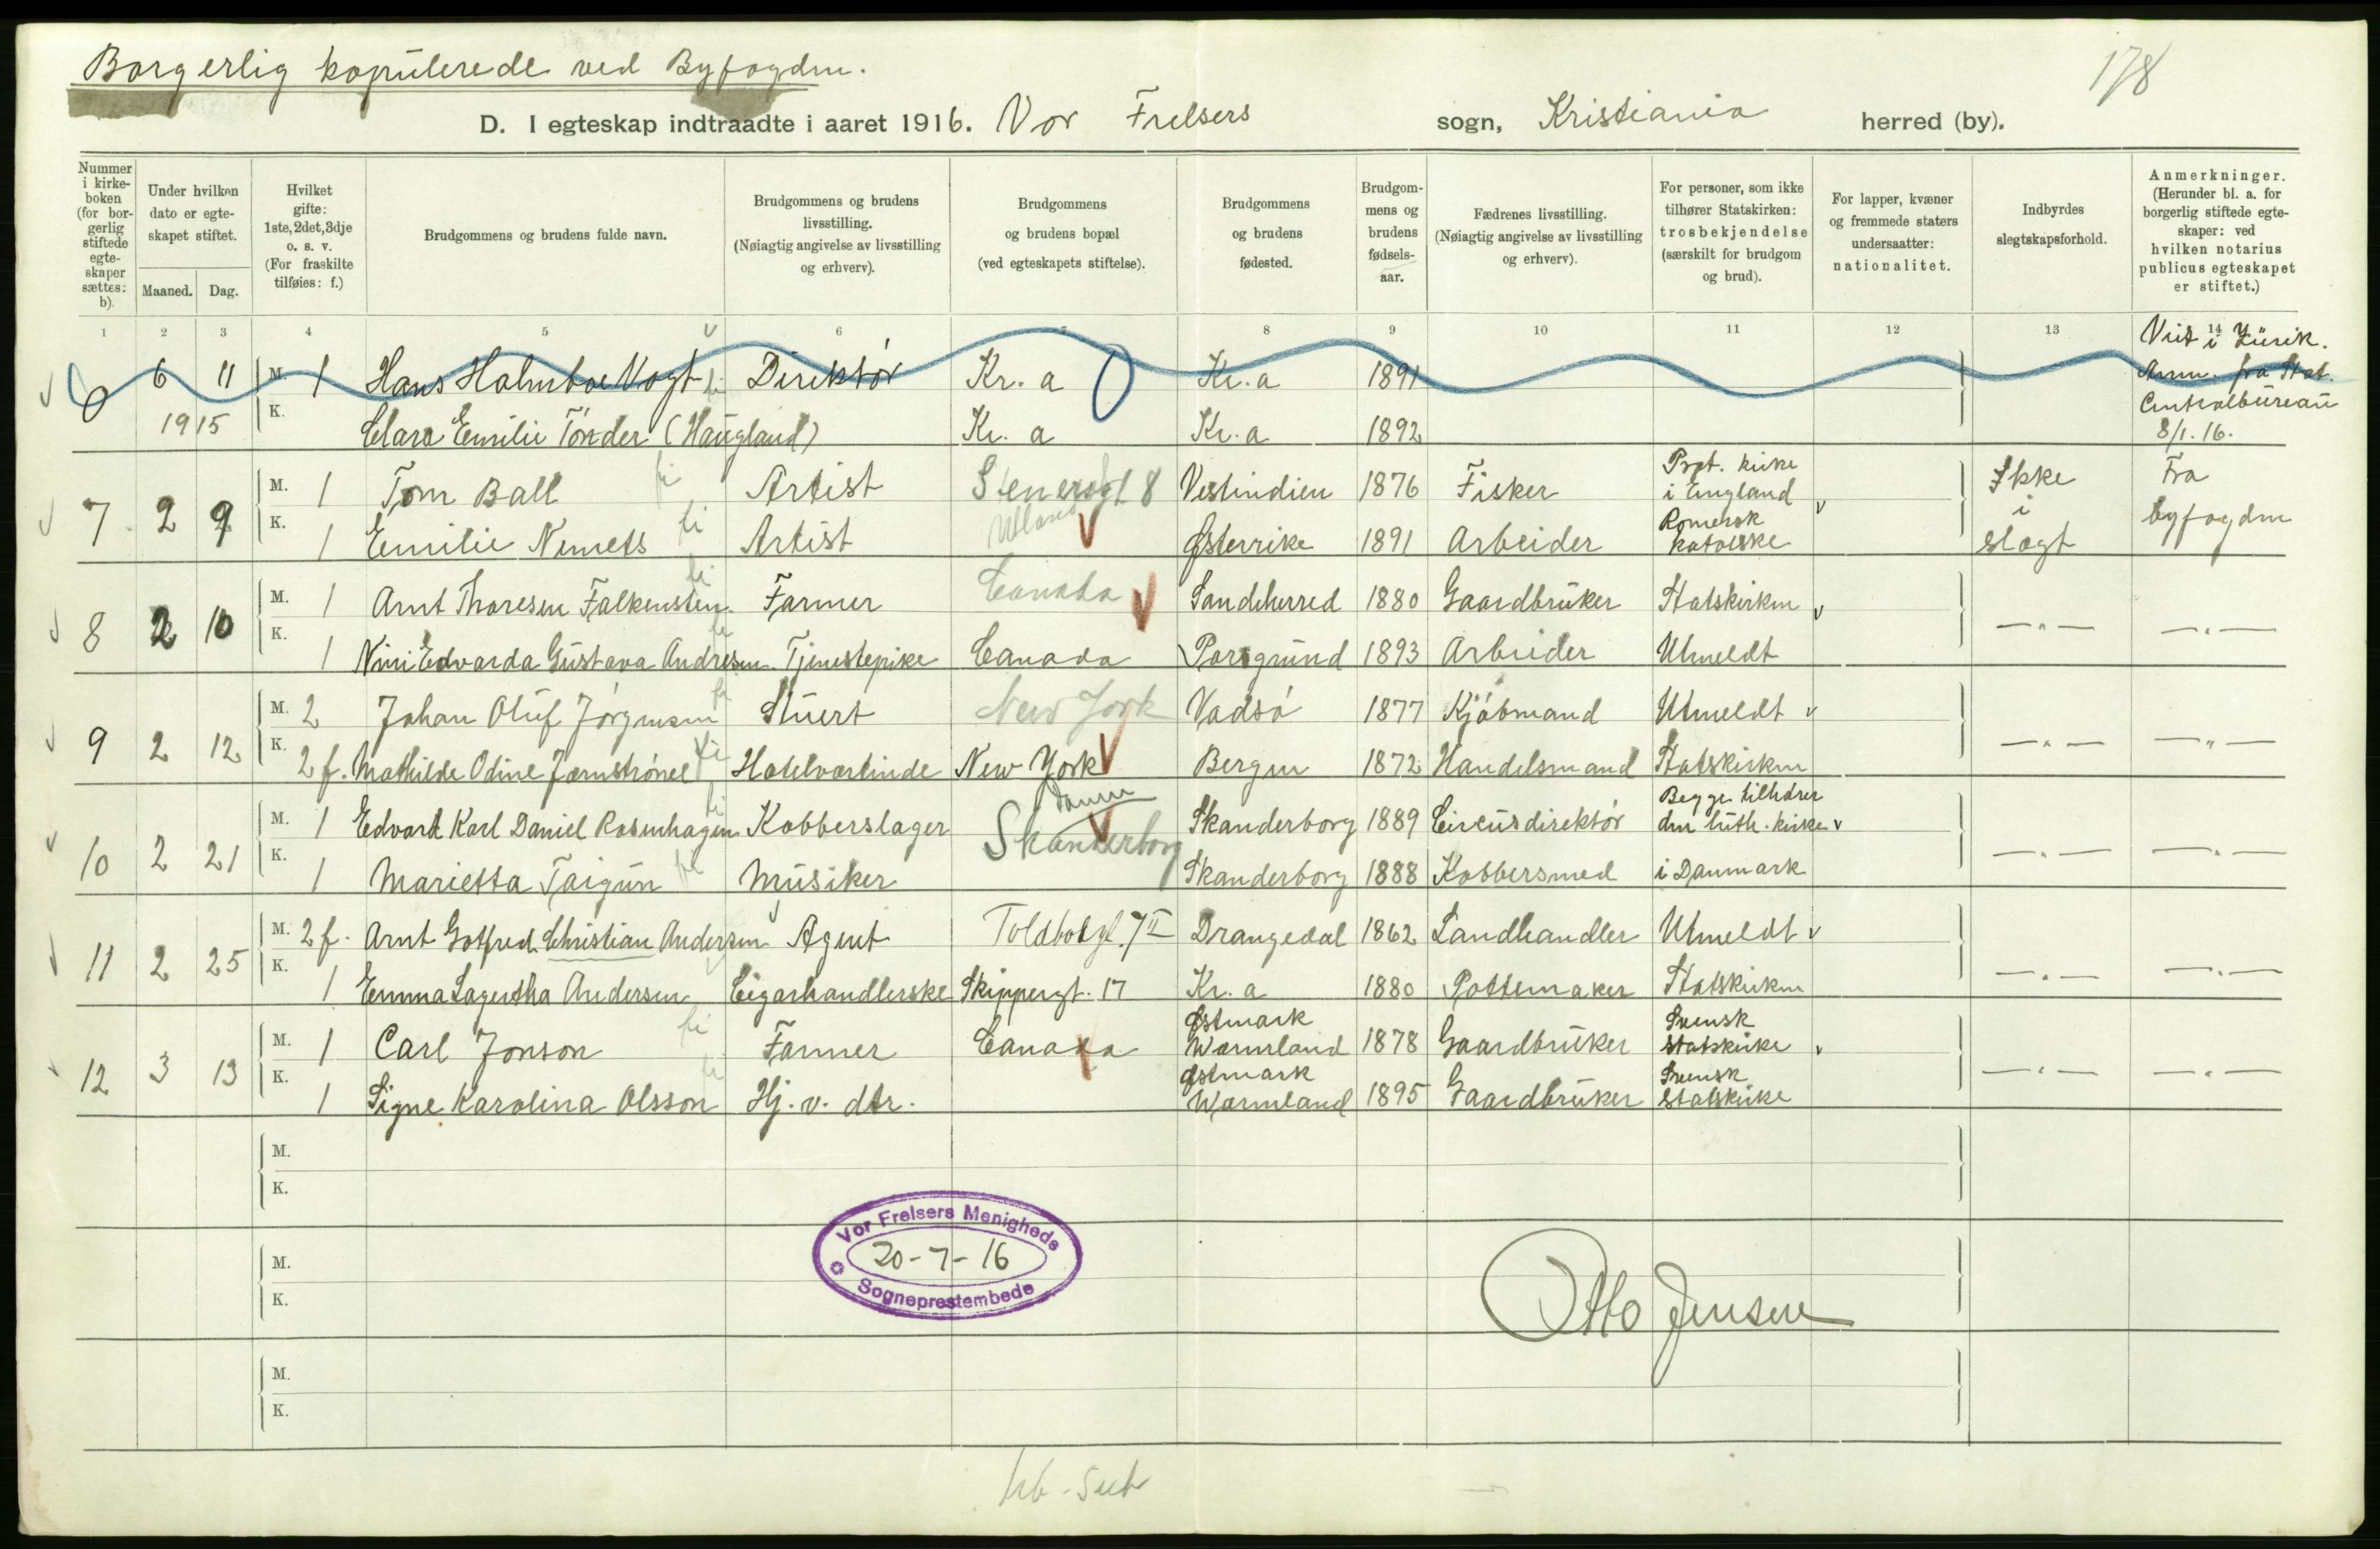 Borgerlig kopulerede ved Byfogden.
178
D. I egteskap indtraadte i aaret 1916. Vor Frelsers sogn, Kristiania herred (by).
Nummer i kirke-boken (for bor-gerlig stiftede egte-skaper sættes: b).
Under hvilken dato er egte-skapet stiftet.
Maaned. Dag.
Hvilket gifte: 1ste, 2det, 3dje o. s. v. (For fraskilte tilføies: f.)
Brudgommens og brudens fulde navn.
Brudgommens og brudens livsstilling. (Nøiagtig angivelse av livsstilling og erhverv).
Brudgommens og brudens bopæl (ved egteskapets stiftelse).
Brudgommens og brudens fødested.
Brudgom-mens og brudens fødsels-aar.
Fædrenes livsstilling. (Nøiagtig angivelse av livsstilling og erhverv).
For personer, som ikke tilhører Statskirken: trosbekjendelse (særskilt for brudgom og brud).
For lapper, kvæner og fremmede staters undersaatter: nationalitet.
Indbyrdes slegtskapsforhold.
Anmerkninger. (Herunder bl. a. for borgerlig stiftede egte-skaper: ved hvilken notarius publicus egteskapet er stiftet.)
1 2 3 4 5 6 7 8 9 10 11 12 13 14
6 6 11 M. 1 Hans Holmboe Vogt Direktör Kr. a Kr. a 1891 Viet i Zürik. Anm. fra Stat. Centralbureau 8/1. 16.
1915 K. Clara Emilie Tönder (Haugland) Kr. a Kr. a 1892
7 2 9 M. 1 Tom Ball Artist Stenersgt 8 Vestindien 1876 Fisker Prot. kirke i England Ikke i slegt Fra byfogden
K. 1 Emilie Nemets Artist Østerrike 1891 Arbeider Romersk katolske
8 2 10 M. 1 Arnt Thoresen Falkensten Farmer Canada Sandeherred 1880 Gaardbruker Statskirken —"— —"—
K. 1 Nini Edvarda Gustava Andresen Tjenestepike Canada Porsgrund 1893 Arbeider Utmeldt
9 2 12 M. 2 Johan Oluf Jörgensen Stuert New York Vadsö 1877 Kjöbmand Utmeldt —"— —"—
K. 2 f. Mathilde Odine Jærnströnel Hotelværtinde New York Bergen 1872 Handelsmand Statskirken
10 2 21 M. 1 Edvart Karl Daniel Rosenhagen Kobberslager Skanderborg Danm Skanderborg 1889 Circusdirektör Begge tilhører den luth. kirke —"— —"—
K. 1 Marietta Taigun Musiker Skanderborg 1888 Kobbersmed i Danmark
11 2 25 M. 2 f. Arnt Gotfred Christian Andersen Agent Toldbodgt. 7 II Drangedal 1862 Landhandler Utmeldt —"— —"—
K. 1 Emma Lagertha Andersen Cigarhandlerske Skippergt. 17 Kr. a 1880 Pottemaker Statskirken
12 3 13 M. 1 Carl Jonson Farmer Canada Østmark Wærmland 1878 Gaardbruker Svensk statskirke —"— —"—
K. 1 Signe Karolina Olsson Hj. v. dtr. Østmark Wærmland 1895 Gaardbruker Svensk statskirke
M.
K.
Vor Frelsers Menigheds
20-7-16
Sogneprestembede
M.
K.
Otto Jensen
M.
K.